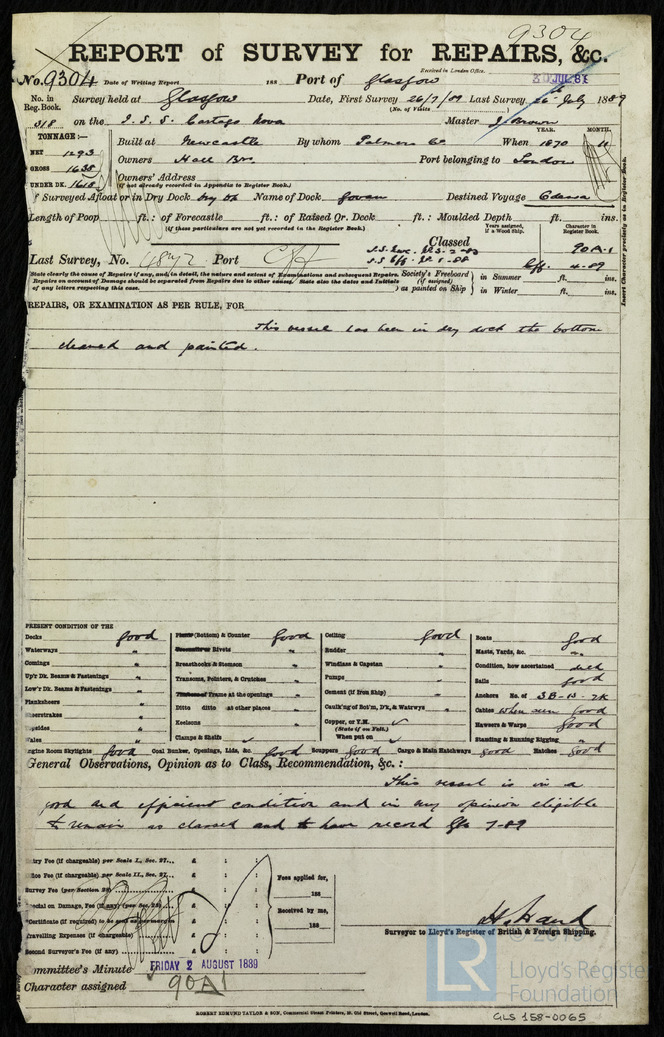 9304
REPORT of SURVEY for REPAIRS, &c.
Received in London Office.
No. 9304 Date of Writing Report 188 Port of Glasgow 30 JUL 89
No. in Reg. Book. Survey held at Glasgow Date, First Survey 26/7/89 Last Survey 26th July 1889
(No. of Visits)
318 on the I. S. S. Cartago Nova Master J. Brown
TONNAGE:— YEAR. MONTH.
NET 1293 Built at Newcastle By whom Palmers Co. When 1870 11
GROSS 1638 Owners Hall Brs. Port belonging to London
UNDER DK. 1618 Owners' Address
(if not already recorded in Appendix to Register Book.)
If Surveyed Afloat or in Dry Dock Dry Dk Name of Dock Govan Destined Voyage Odessa
Length of Poop ft.: of Forecastle ft.: of Raised Qr. Deck ft.: Moulded Depth ft. ins.
(if these particulars are not yet recorded in the Register Book.)
Classed Years assigned, if a Wood Ship. Character in Register Book.
Insert Character precisely as in Register Book.
90A.1
Last Survey, No. Port
4.89
State clearly the cause of Repairs if any, and, in detail, the nature and extent of Examinations and subsequent Repairs.
Repairs on account of Damage should be separated from Repairs due to other causes. State also the dates and Initials
of any letters respecting this case.
Society's Freeboard (if assigned) as painted on Ship in Summer ft. ins.
in Winter ft. ins.
REPAIRS, OR EXAMINATION AS PER RULE, FOR
This vessel has been in dry dock the bottom
cleaned and painted.
PRESENT CONDITION OF THE
Decks good
Waterways "
Comings "
Up'r Dk. Beams & Fastenings "
Low'r Dk. Beams & Fastenings "
Planksheers "
Sheerstrakes "
Topsides "
Wales "
Plank (Bottom) & Counter good
Treenails or Rivets "
Breasthooks & Stemson "
Transoms, Pointers, & Crutches "
Timbers of Frame at the openings "
Ditto ditto at other places "
Keelsons "
Clamps & Shelfs
Ceiling good
Rudder "
Windlass & Capstan "
Pumps "
Cement (if Iron Ship) "
Caulking of Bot'm, D'k, & Watrw'ys "
Copper, or Y.M.
(State if on Felt.)
When put on
Boats good
Masts, Yards, &c. "
Condition, how ascertained deck
Sails good
Anchors No. of 3B-1S-2K
Cables when seen good
Hawsers & Warps good
Standing & Running Rigging "
Engine Room Skylights good Coal Bunker, Openings, Lids, &c. good Scuppers good Cargo & Main Hatchways good Hatches good
General Observations, Opinion as to Class, Recommendation, &c.:
This vessel is in a
good and efficient condition and in my opinion eligible
to remain as classed and to have record Gls 7-89
Entry Fee (if chargeable) per Scale I., Sec. 27. £ : :
Office Fee (if chargeable) per Scale II., Sec. 27. £ : :
Survey Fee (per Section 28) £ : :
Special on Damage, Fee (if any) (per Sec. 28) £ : :
Certificate (if required) to be sent as per margin £ : :
Travelling Expenses (if chargeable) £ : :
Second Surveyor's Fee (if any) £ : :
Fees applied for,
188
Received by me,
188
H. Hand
Surveyor to Lloyd's Register of British & Foreign Shipping.
Committee's Minute FRIDAY 2 AUGUST 1889
Character assigned 90A1
ROBERT EDMUND TAYLOR & SON, Commercial Steam Printers, 19, Old Street, Goswell Road, London.
LR
Lloyd's Register
Foundation
GLS 158-0065